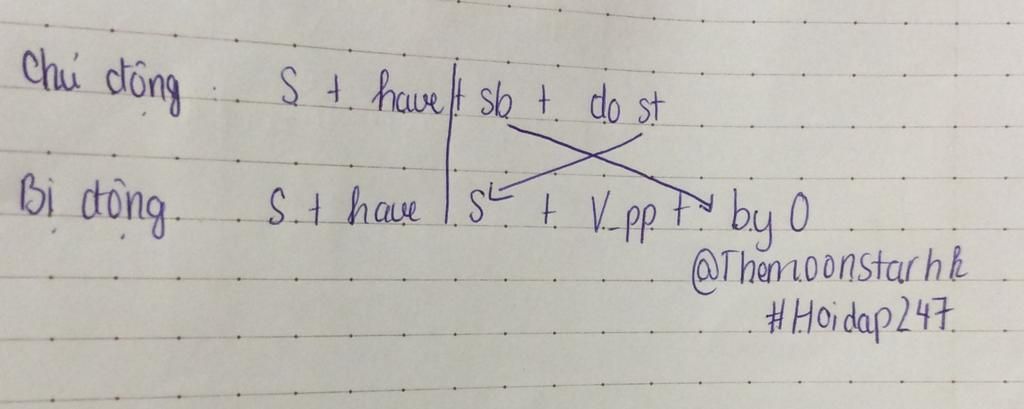 Chủ động: S + have + sb + do st
Bị động. S + have S + V_pp + by O
@Themoonstarhk
#Hoidap247